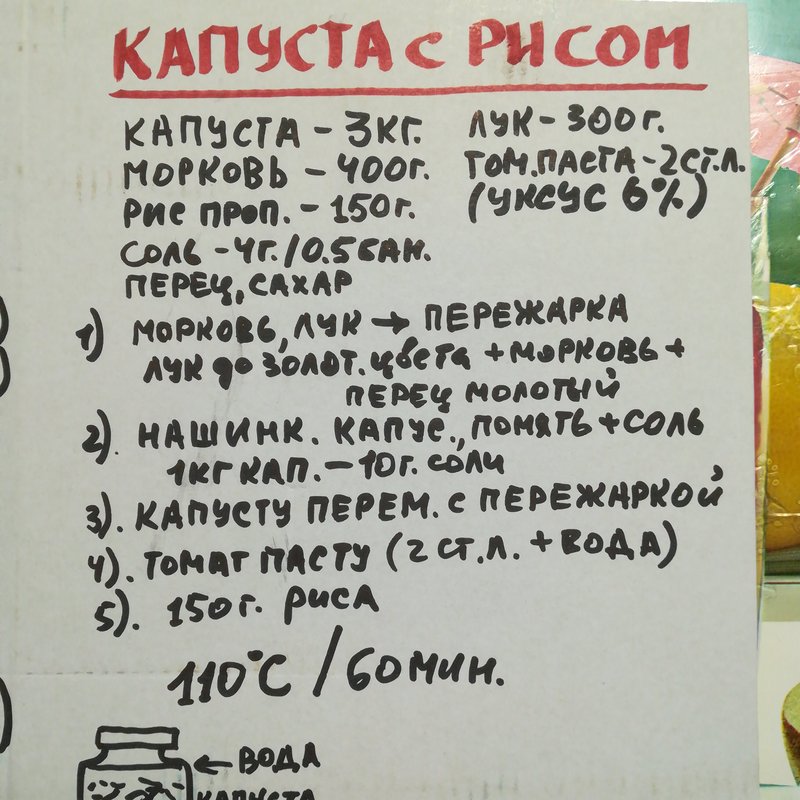 КАПУСТА С РИСОМ
КАПУСТА – 3КГ.
МОРКОВЬ – 400Г.
РИС ПРОП. – 150Г.
СОЛЬ – 4Г./0.5 БАН.
ПЕРЕЦ, САХАР
ЛУК – 300Г.
ТОМ.ПАСТА – 2СТ.Л.
(УКСУС 6%)
1) МОРКОВЬ, ЛУК → ПЕРЕЖАРКА
ЛУК до ЗОЛОТ. цвета + МОРКОВЬ +
ПЕРЕЦ МОЛОТЫЙ
2). НАШИНК. КАПУС., ПОМЯТЬ + СОЛЬ
1КГ КАП. – 10Г. СОЛИ
3). КАПУСТУ ПЕРЕМ. С ПЕРЕЖАРКОЙ
4). ТОМАТ ПАСТУ (2 СТ.Л. + ВОДА)
5). 150Г. РИСА
110°С / 60 МИН.
← ВОДА
КАПУСТА